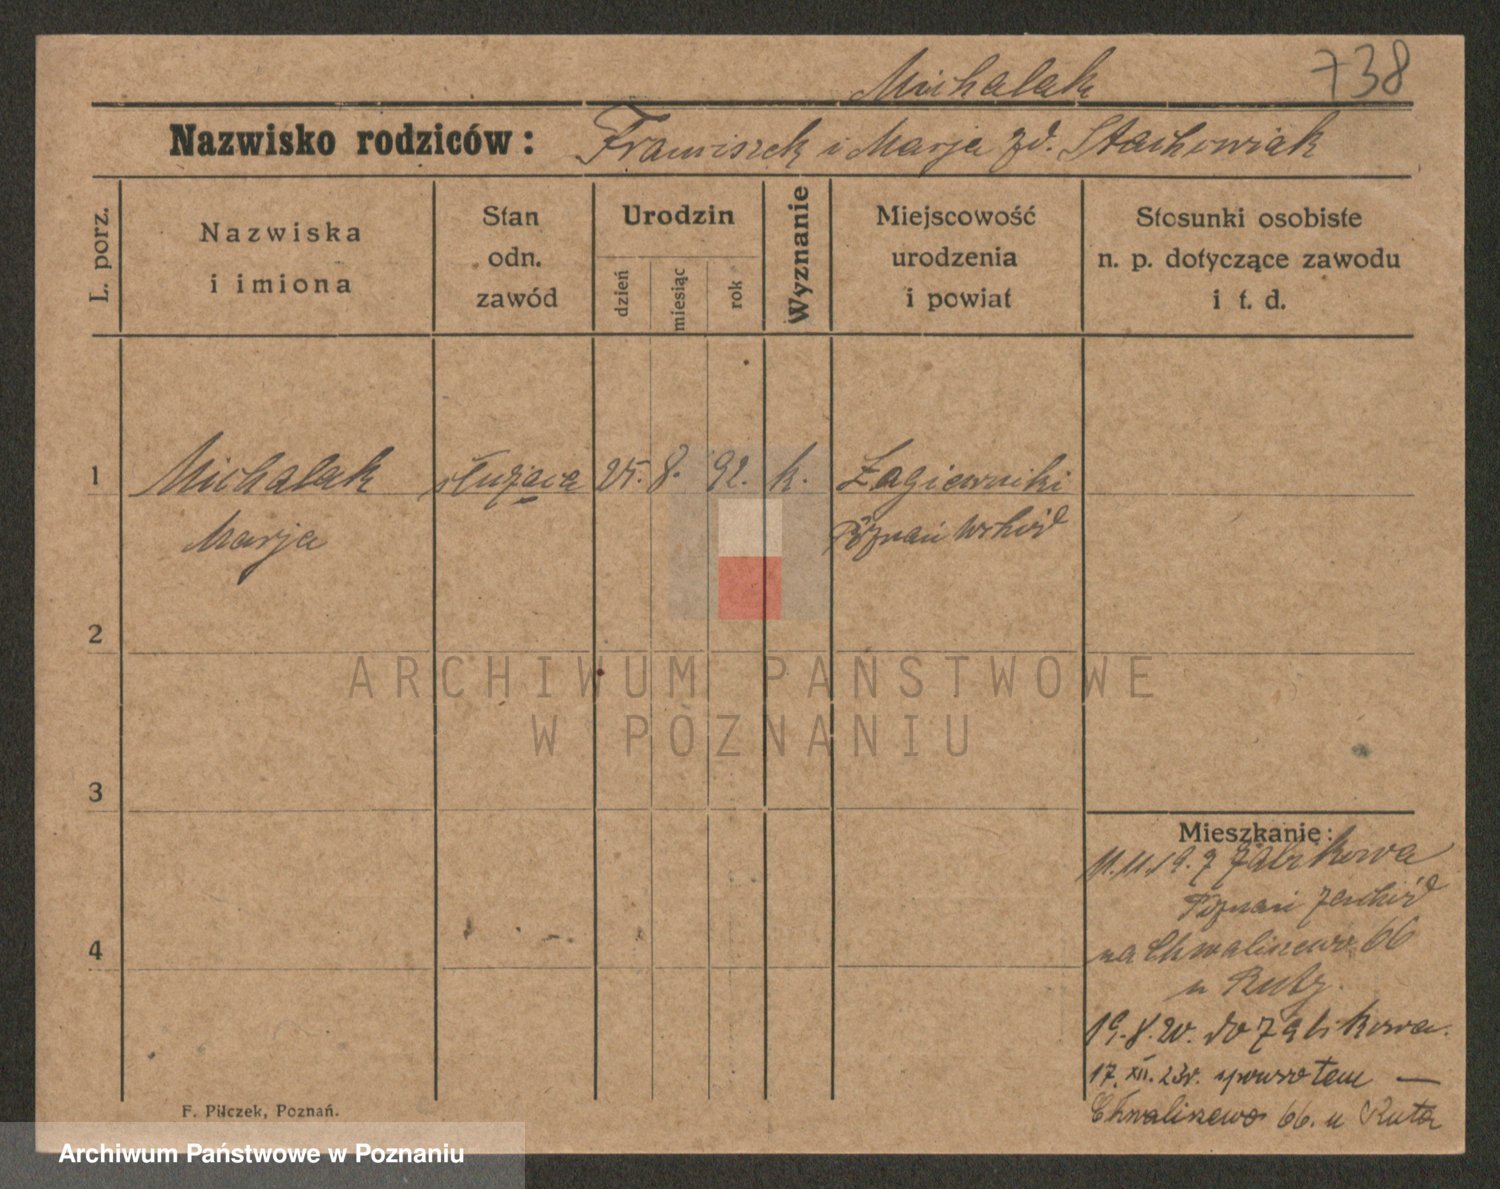 Michalak
738
Nazwisko rodziców: Franciszek i Marja zd. Stachowiak
L. porz.
Nazwiska
i imiona
Stan
odn.
zawód
Urodzin
dzień
miesiąc
rok
Wyznanie
Miejscowość
urodzenia
i powiat
Stosunki osobiste
n. p. dotyczące zawodu
i t. d.
1 Michalak służąca 25. 8. 92. k. Żagiewniki
Marja Poznań Wschód
2
ARCHIWUM PAŃSTWOWE
W POZNANIU
3
Mieszkanie:
11.11.19. z Żabikowa
Poznań Zachód
na Chwaliszewo 66
u
4
19.8.20. do Żabikowa.
17.XII.23r. spowrotem —
Chwaliszewo 66. u
F. Pilczek, Poznań.
Archiwum Państwowe w Poznaniu